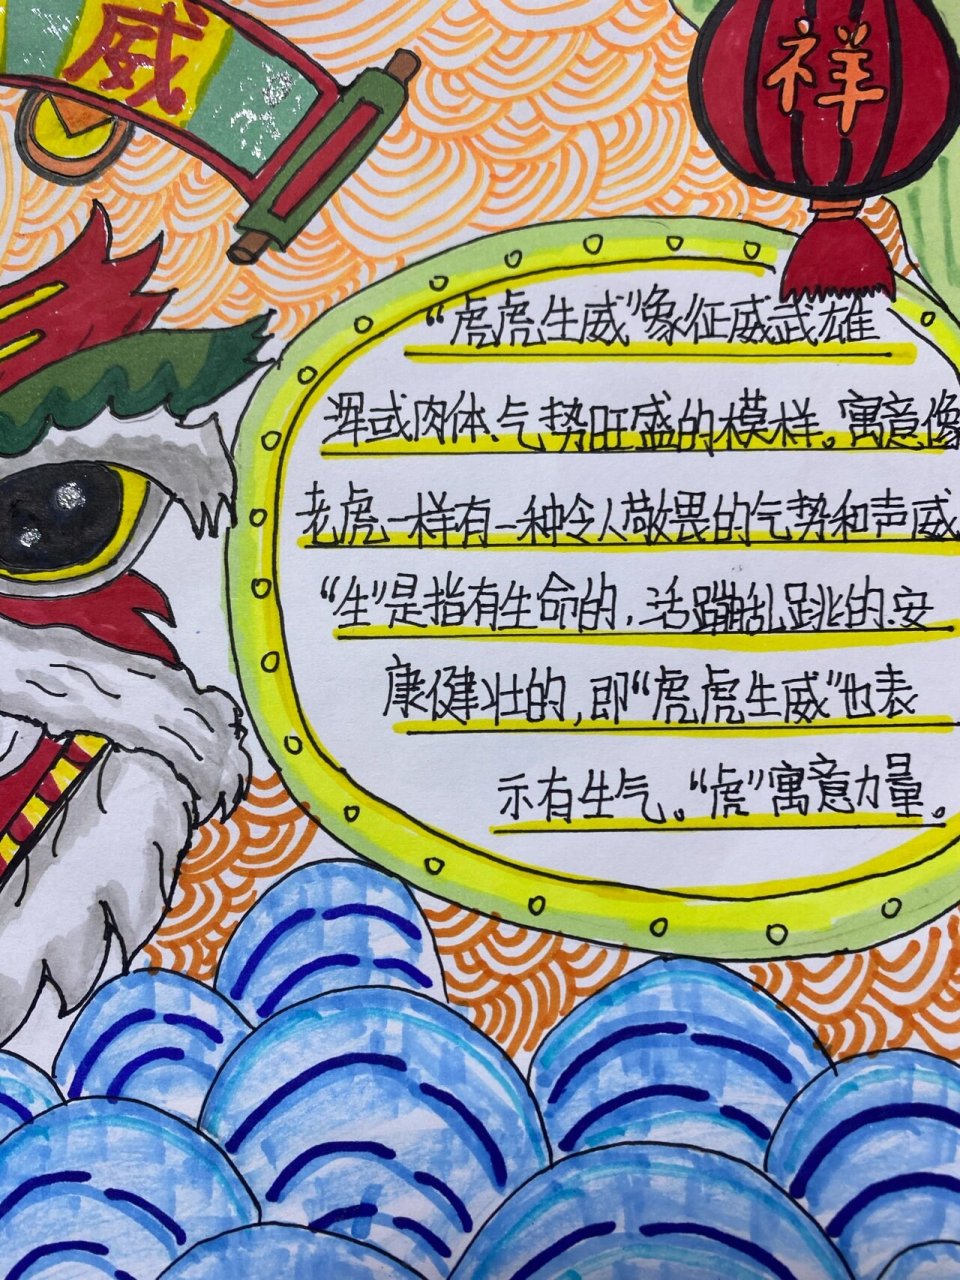 威
祥
“虎虎生威”象征威武雄
浑或肉体、气势旺盛的模样。寓意像
老虎一样有一种令人敬畏的气势和声威
“生”是指有生命的,活蹦乱跳的.安
康健壮的,即“虎虎生威”也表
示有生气。“虎”寓意力量。